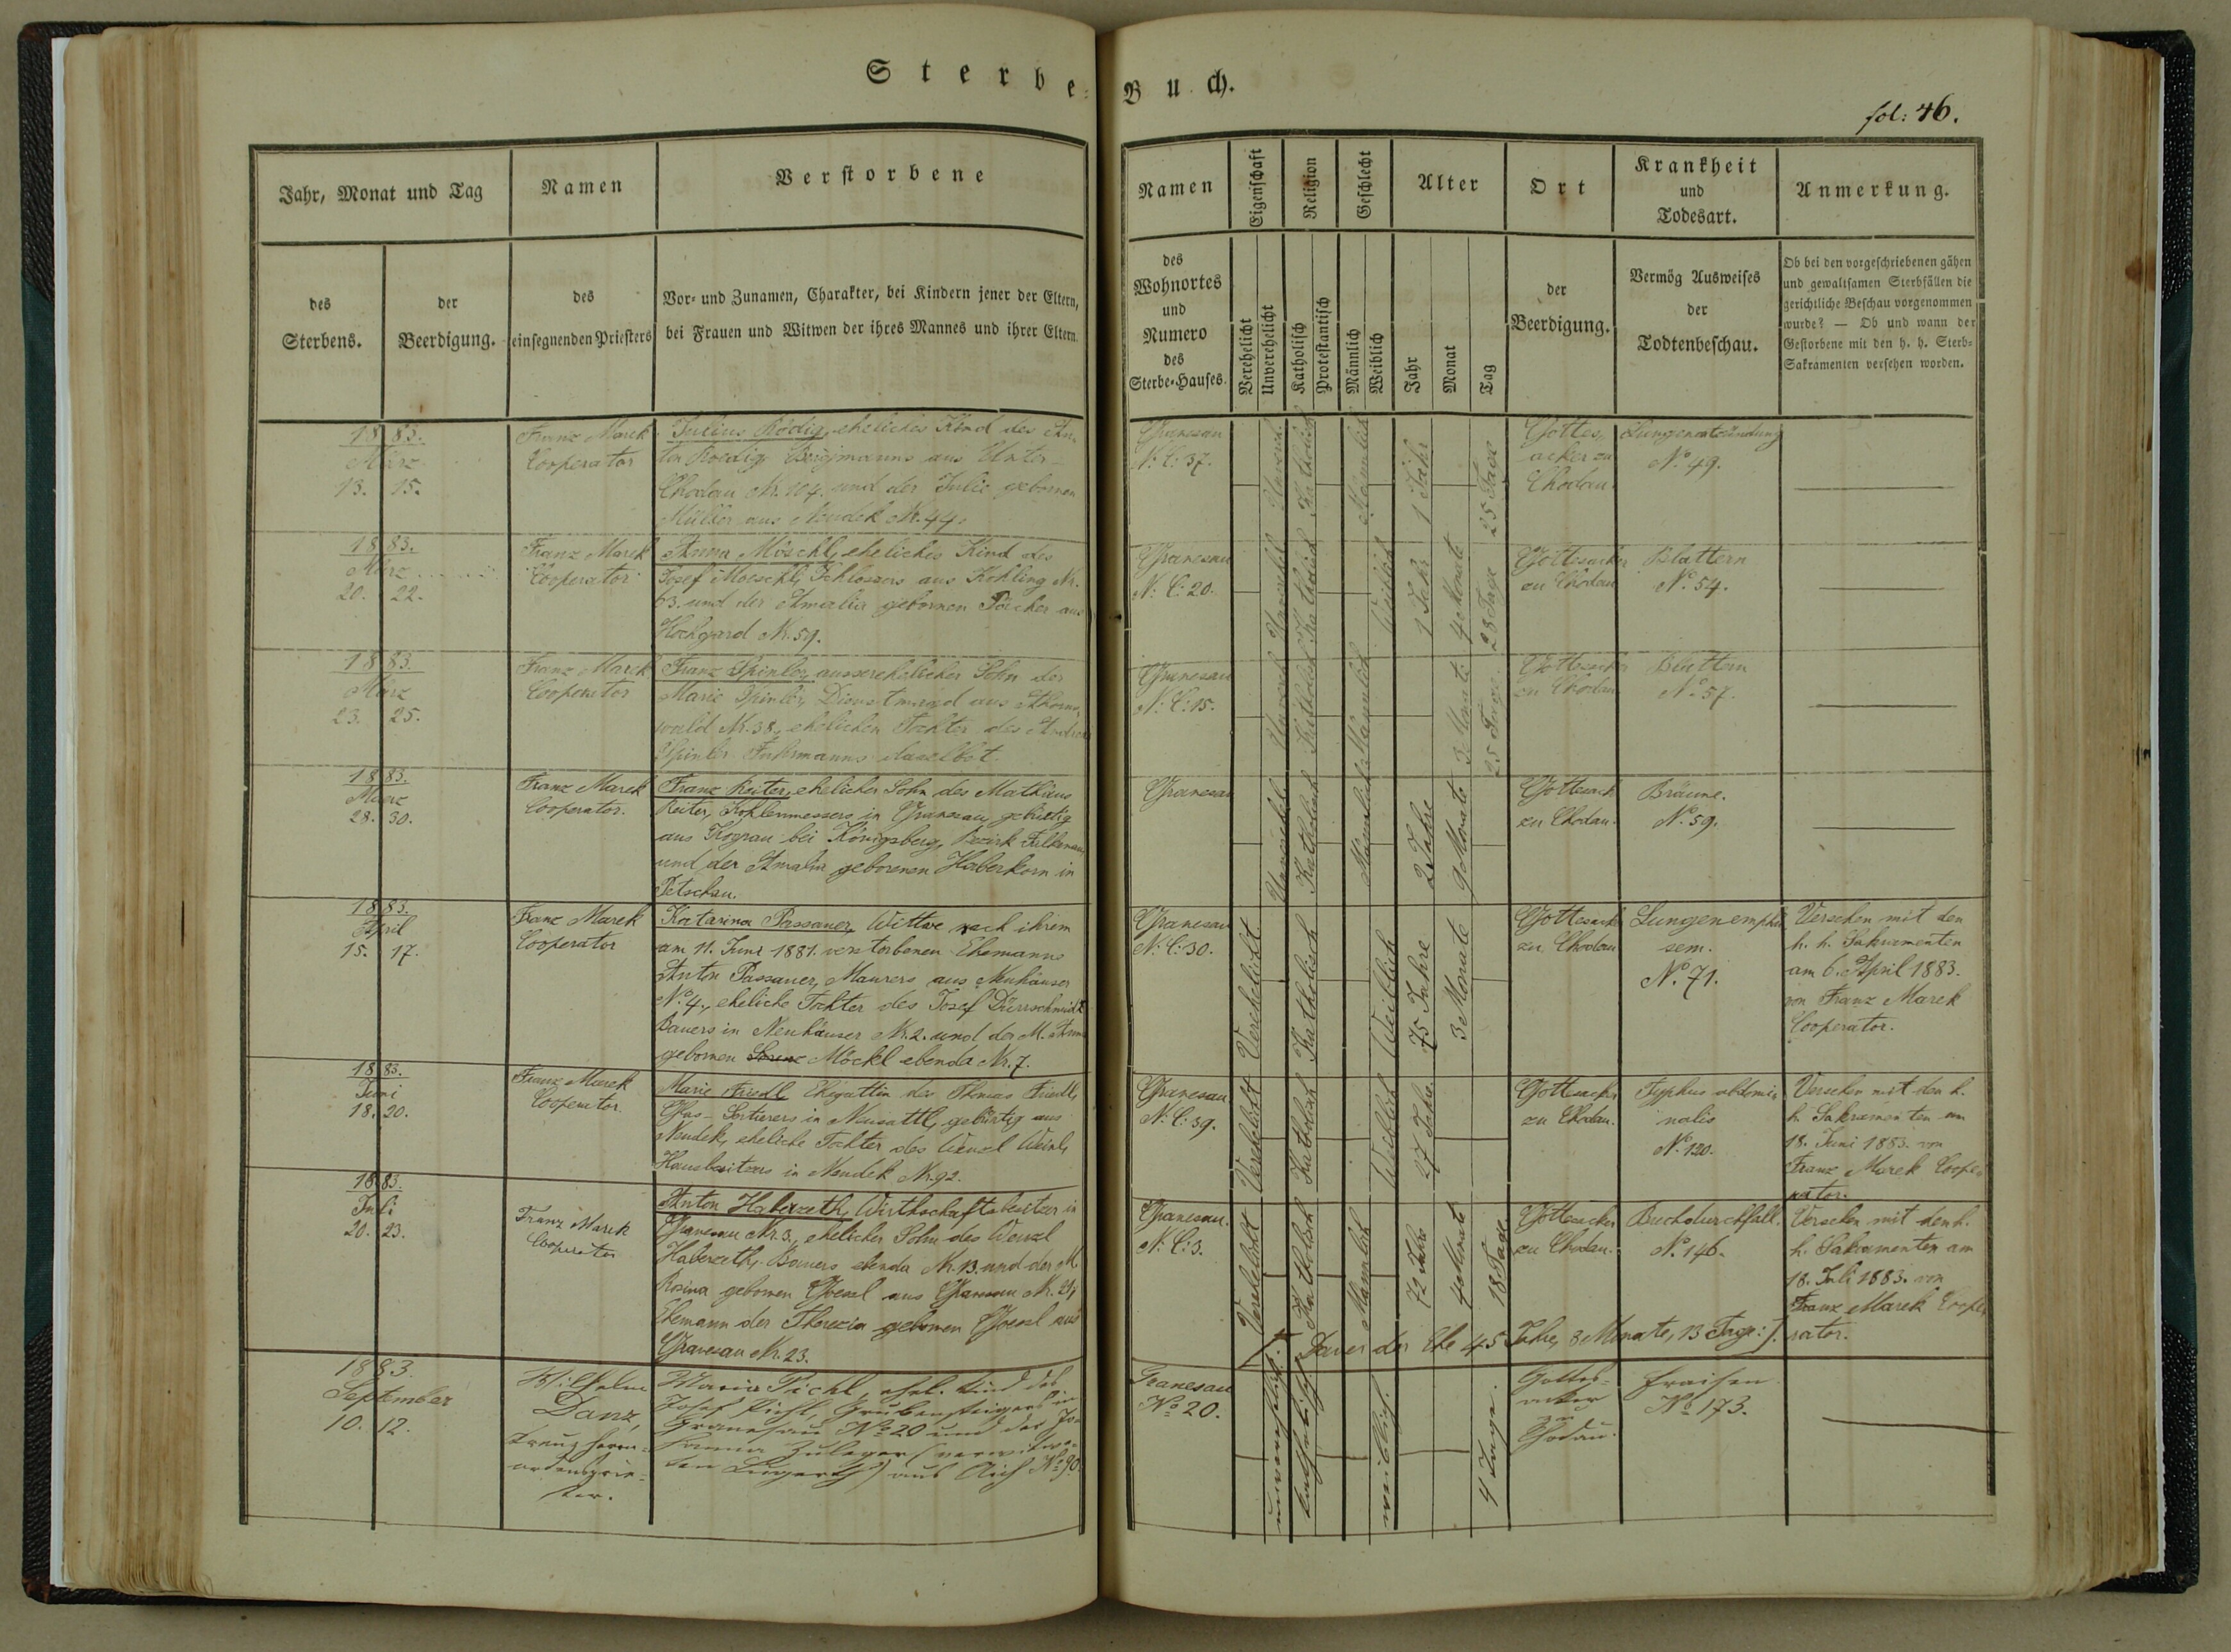 Sterbe-Buch.
fol: 46.
Jahr, Monat und Tag
des
Sterbens.
der
Beerdigung.
Namen
des
einsegnenden Priesters
Verstorbene
Vor- und Zunamen, Charakter, bei Kindern jener der Eltern,
bei Frauen und Witwen der ihres Mannes und ihrer Eltern.
Namen
des
Wohnortes
und
Numero
des
Sterbe-Hauses.
Eigenschaft
Verehelicht
Unverehelicht
Religion
Katholisch
Protestantisch
Geschlecht
Männlich
Weiblich
Alter
Jahr
Monat
Tag
Ort
der
Beerdigung.
Krankheit
und
Todesart.
Vermög Ausweises
der
Todtenbeschau.
Anmerkung.
Ob bei den vorgeschriebenen gähen
und gewaltsamen Sterbfällen die
gerichtliche Beschau vorgenommen
wurde? — Ob und wann der
Gestorbene mit den h. h. Sterb-
Sakramenten versehen worden.
1883.
März
13. 15.
Franz Marek
Cooperator
Julius Rödig, eheliches Kind des An-
ton Roedig Bergmanns aus Unter-
Chodau Nr. 104. und der Julie gebornen
Müller aus Neudek Nr. 44.
Granesau
N. C: 37.
Unverehel.
Katholisch
Männlich
1 Jahr
25 Tage
Gottes-
acker zu
Chodau.
Lungenentzündung
No. 49.
1883.
März
20. 22.
Franz Marek
Cooperator
Anna Möschl, eheliches Kind des
Josef Moeschl, Schlossers aus Kohling Nr.
63. und der Amalia gebornen Päcker aus
Hochgard Nr. 59.
Granesau
N. C: 20.
Unverehel.
Katholisch
Weiblich
1 Jahr
4 Monate
28 Tage
Gottesacker
zu Chodau
Blattern
No. 54.
1883.
März
23. 25.
Franz Marek
Cooperator
Franz Spinler, ausserehelicher Sohn der
Marie Spinler, Dienstmagd aus
wald Nr. 38, ehelichen Tochter des Andreas
Spinler Fuhrmanns daselbst.
Granesau
N. C: 15.
Unverehel.
Katholisch
Männlich
3 Monate
25 Tage
Gottesacker
zu Chodau
Blattern
No. 57.
1883.
Maerz
28. 30.
Franz Marek
Cooperator.
Franz Reiter, ehelicher Sohn des Mathäus
Reiter, Kohlenmessers in Granesau, gebürtig
aus Kograu bei Königsberg, Bezirk Falkenau,
und der Amalia geborenen Haberkorn in
Petschau.
Granesau
Unverehel.
Katholisch
Männlich
2 Jahre
9 Monate
Gottesack
zu Chodau.
Bräune.
No. 59.
1883.
April
15. 17.
Franz Marek
Cooperator
Katarina Passauer, Wittwe nach ihrem
am 11. Juni 1881. verstorbenen Ehemanne
Anton Passauer, Maurers aus Neuhäuser
No. 4., eheliche Tochter des Josef Dürrschmidt
Bauers in Neuhäuser Nr. 2. und der M. Anna
gebornen Möckl ebenda Nr. 7.
Granesau
N. C: 30.
Verehelicht
Katholisch
Weiblich
75 Jahre
3 Monate
Gottesacker
zu Chodau
Lungenemphy
sem.
No. 71.
Versehen mit den
h. h. Sakramenten
am 6. April 1883.
von Franz Marek
Cooperator.
1883.
Juni
18. 20.
Franz Marek
Cooperator
Marie Friedl Ehegattin des Thomas Friedl,
Glas-Sortierers in Neusattl, gebürtig aus
Neudek, eheliche Tochter des Wenzel Weinl,
Hausbesitzers in Neudek Nr. 92.
Granesau
N. C: 39.
Verehelicht
Katholisch
Weiblich
27 Jahre
Gottesacker
zu Chodau.
Typhus abdomi-
nalis
No. 120.
Versehen mit den h.
h. Sakramenten am
18. Juni 1883. von
Franz Marek Coope-
rator.
1883.
Juli
20. 23.
Franz Marek
Cooperator
Anton Haberzeth, Wirthschaftsbesitzer in
Granesau Nr. 3., ehelicher Sohn des Wenzel
Haberzeth, Bauers ebenda Nr. 13. und der M.
Rosina gebornen Goessl aus Granesau Nr. 21,
Ehemann der Therezia gebornen Goessl aus
Granesau Nr. 23.
Granesau.
N. C: 3.
Verehelicht
Katholisch
Männlich
72 Jahre
4 Monate
18 Tage
Gottesacker
zu Chodau.
Brechdurchfall.
No. 146.
Versehen mit den h.
h. Sakramenten am
18. Juli 1883. von
Franz Marek Coope-
rator.
Dauer der Ehe 45 Jahre, 8 Monate, 13 Tage :/.
1883.
September
10. 12.
Wilhelm
Danz,
Kreuzherrn-
ordensprie-
ster.
Maria Pichl, ehel. Kind des
Josef Pichl, Grubensteigers in
Granesau No. 20 und der Jo-
hanna Zuleger (verwitwe-
ten Lugerth) aus Aich No. 90.
Granesau
No. 20.
unverehelicht.
katholisch
weiblich.
4 Tage.
Gottes-
acker
zu
Chodau.
Fraisen
No. 173.